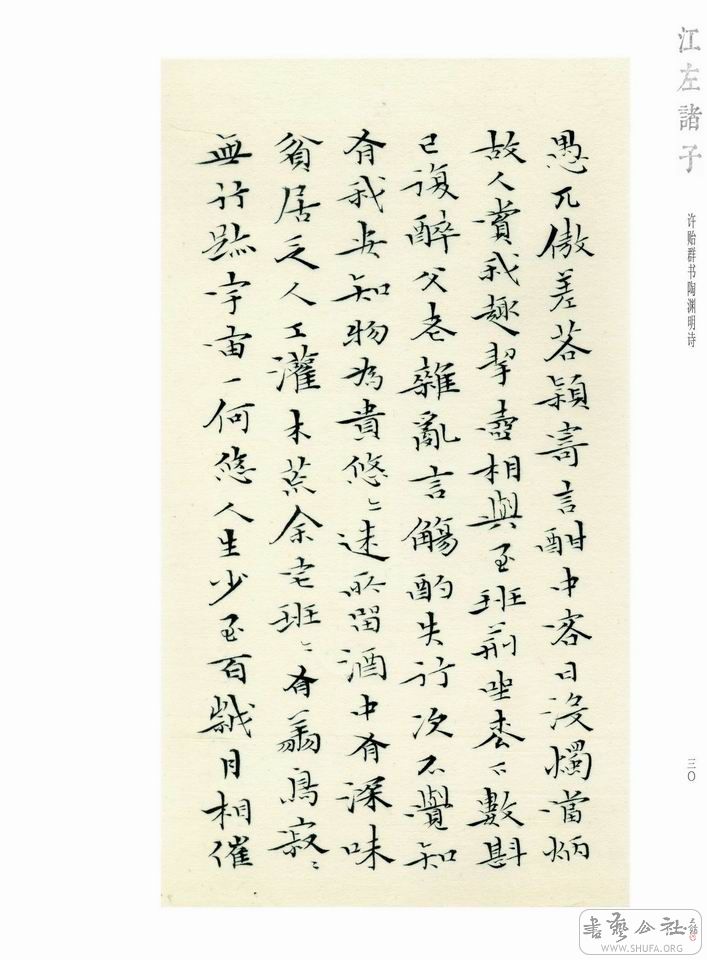 江左諸子
许贻群书陶渊明诗
愚兀傲差若穎寄言酣中客日没燭當炳
故人賞我趣挈壺相與至班荊坐松下數斟
已復醉父老雜亂言觴酌失行次不覺知
有我安知物為貴悠〻迷所留酒中有深味
貧居乏人工灌木荒余宅班〻有翔鳥寂〻
無行跡宇宙一何悠人生少至百歲月相催
三〇
書藝公社
WWW.SHUFA.ORG